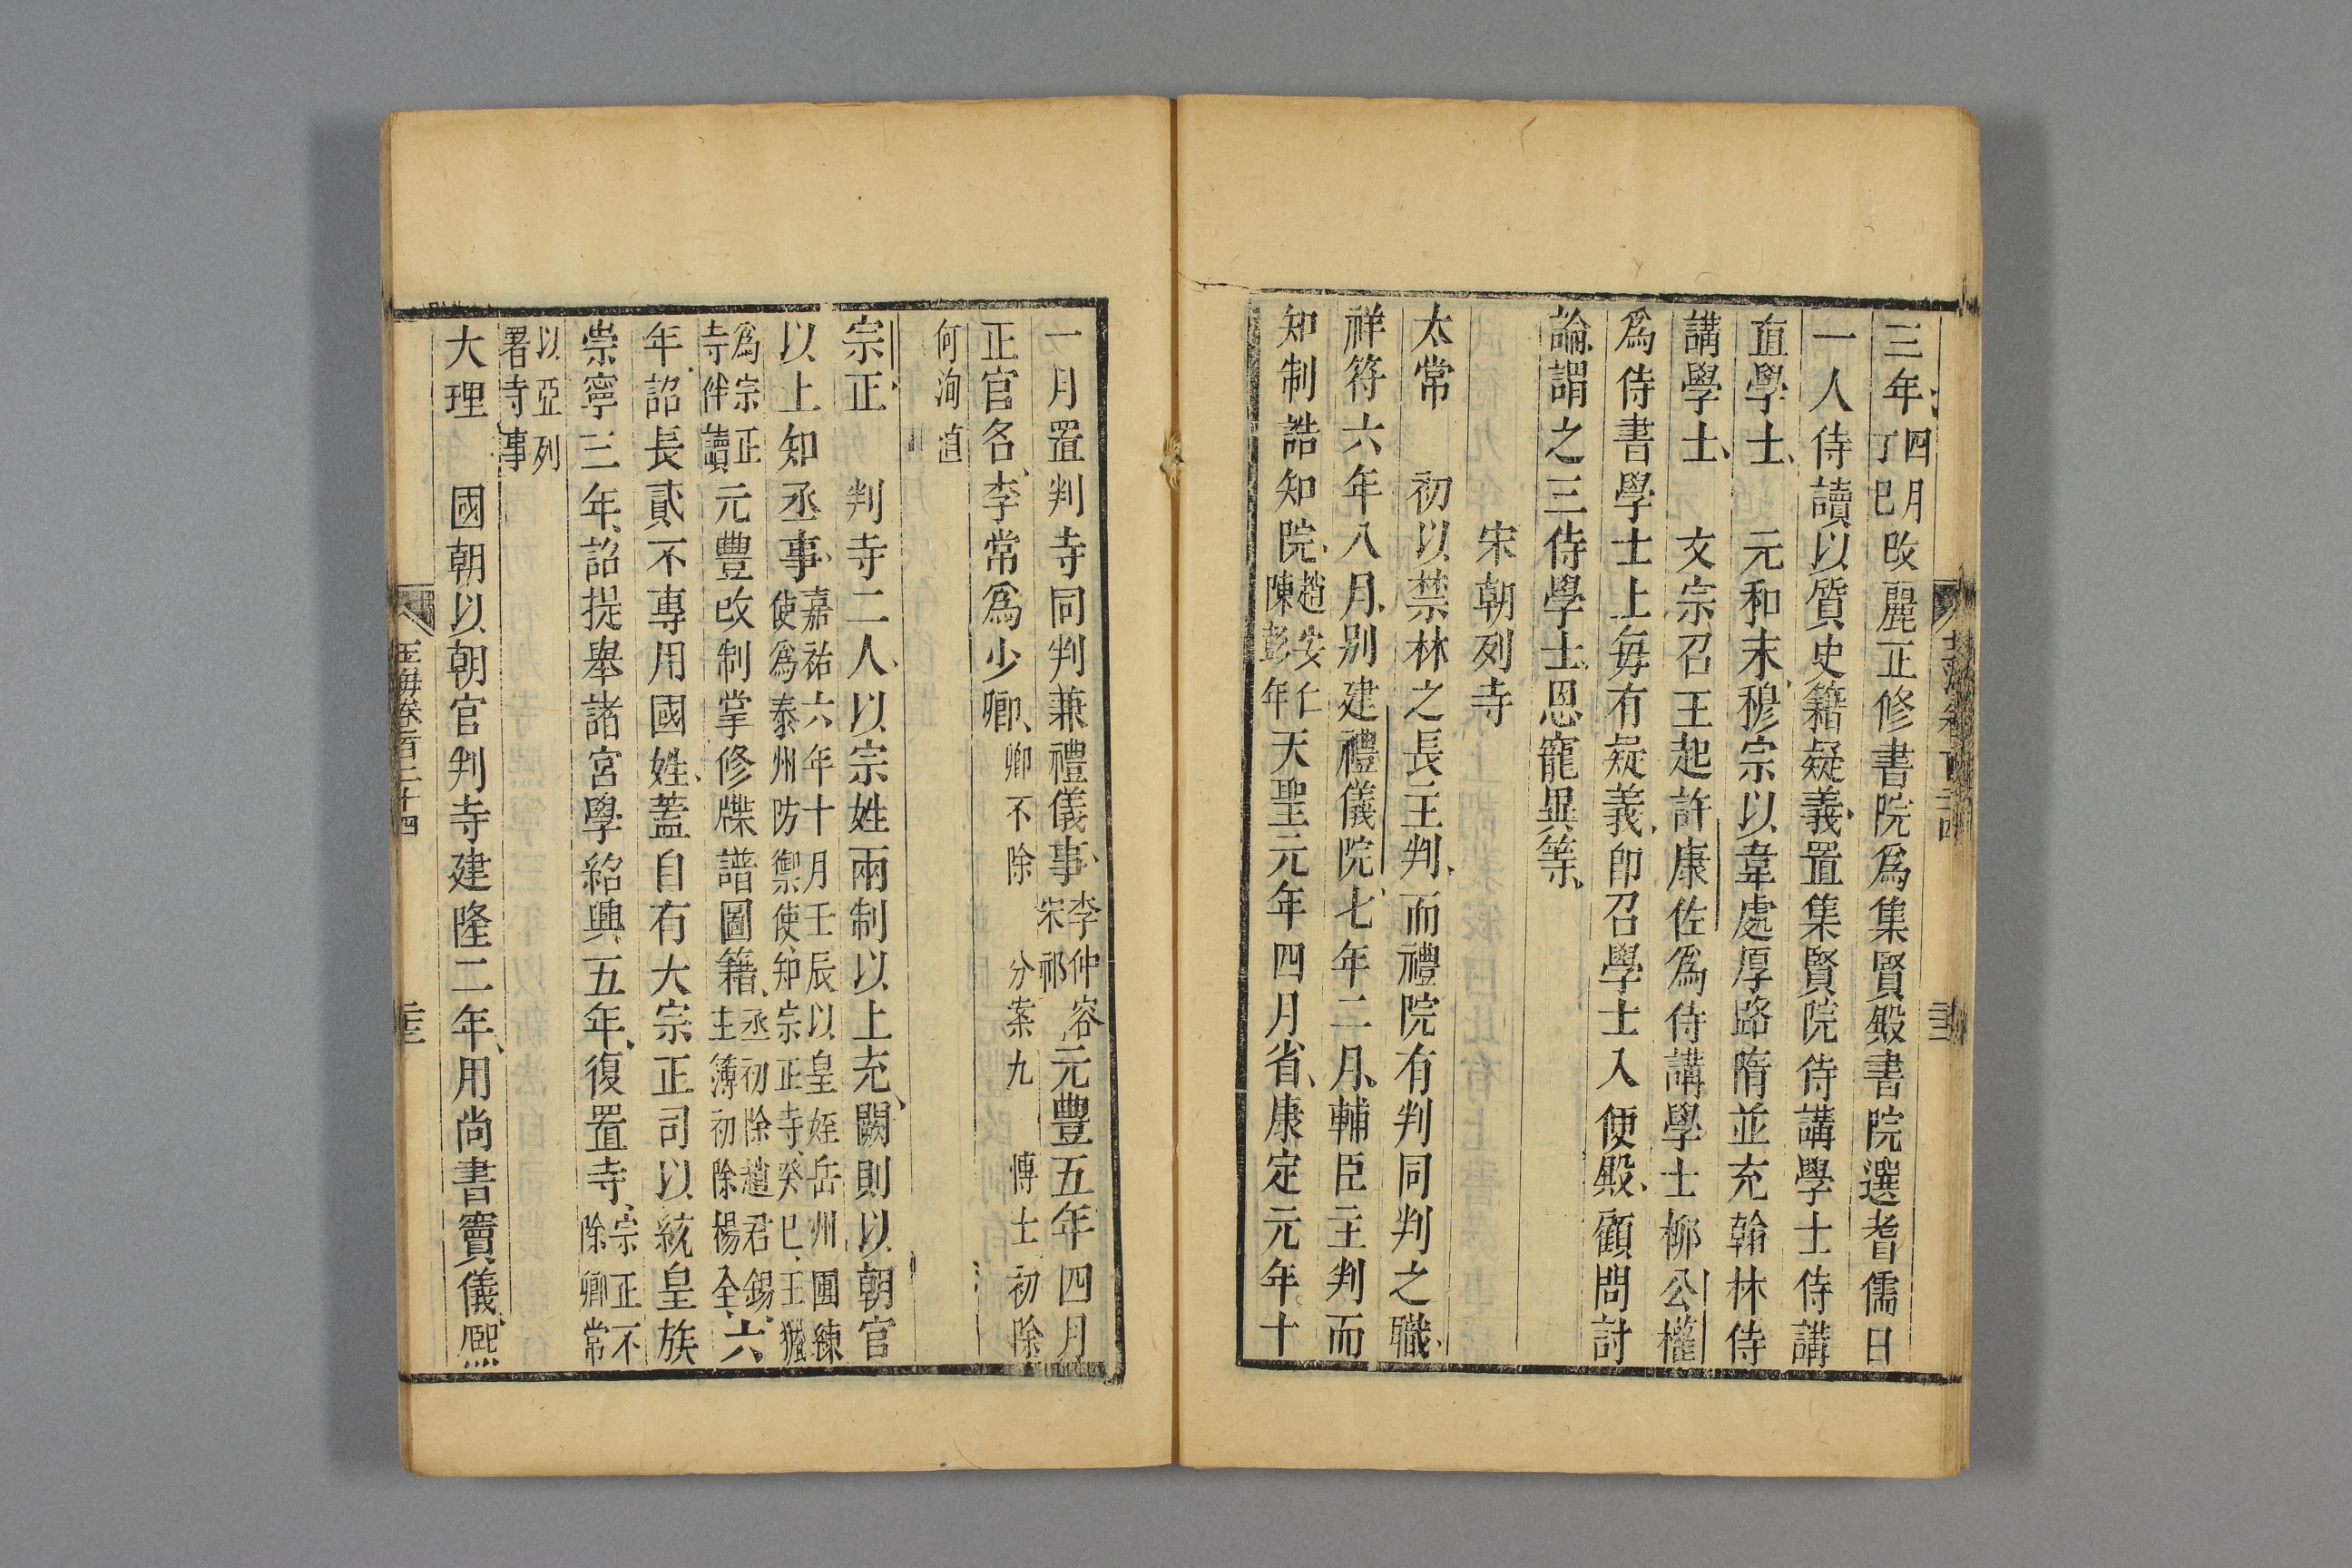 三年四月丁巳改麗正修書院爲集賢殿書院選耆儒日
一人侍讀以質史籍疑義置集賢院侍講學士侍講
直學士　元和末穆宗以韋處厚路隋並充翰林侍
講學士　文宗召王起許康佐爲侍講學士柳公權
爲侍書學士上每有疑義即召學士入便殿顧問討
論謂之三侍學士恩寵異等
宋朝列寺
太常　初以禁林之長主判而禮院有判同判之職
祥符六年八月别建禮儀院七年二月輔臣主判而
知制誥知院趙安仁陳彭年天聖元年四月省康定元年十
一月置判寺同判兼禮儀事李仲容宋祁元豐五年四月
正官名李常爲少卿卿不除　分案九　博士初除
何洵直
宗正　判寺二人以宗姓兩制以上充闕則以朝官
以上知丞事嘉祐六年十月壬辰以皇姪岳州團練使爲泰州防禦使知宗正寺癸巳王獵
爲宗正寺伴讀元豐改制掌修牒譜圖籍丞初除趙君錫主簿初除楊全六
年詔長貳不專用國姓蓋自有大宗正司以統皇族
崇寧三年詔提舉諸宮學紹興五年復置寺宗正不除卿常
以亞列署寺事
大理　國朝以朝官判寺建隆二年用尚書竇儀熙
玉海卷一百二十四